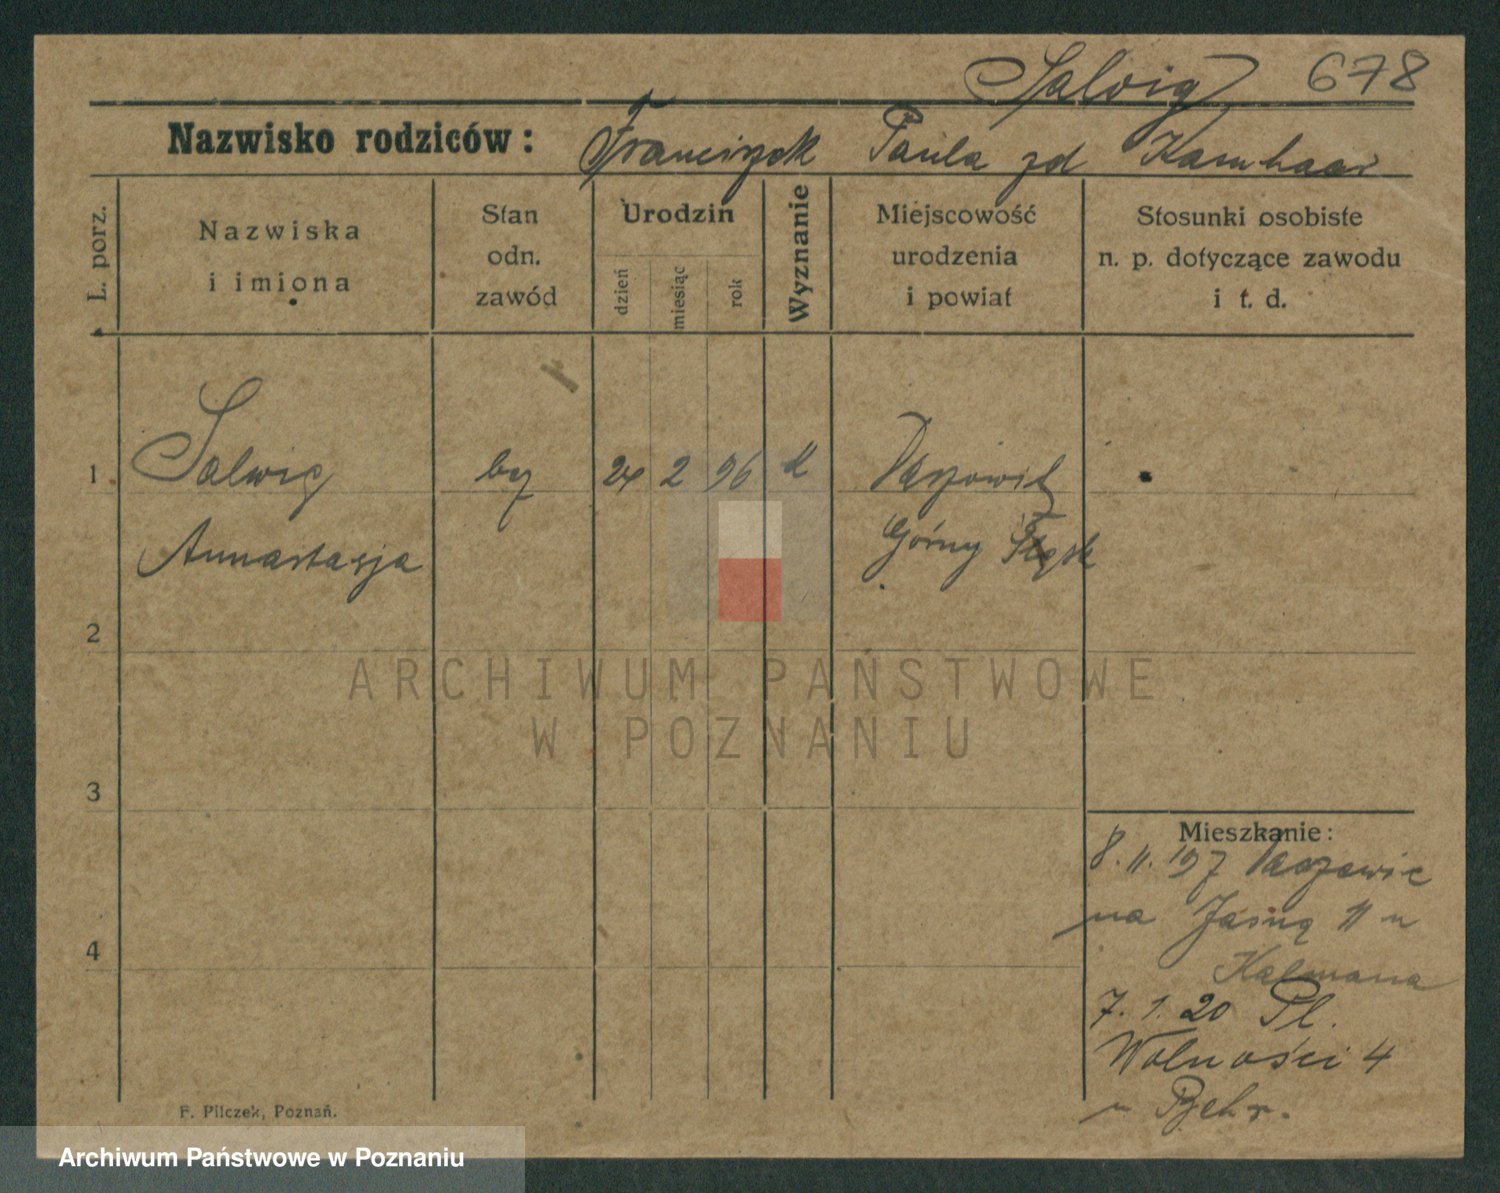 Salvig 678
Nazwisko rodziców: Franciszek Paula zd
L. porz.
Nazwiska
i imiona
Stan
odn.
zawód
Urodzin
dzień
miesiąc
rok
Wyznanie
Miejscowość
urodzenia
i powiat
Stosunki osobiste
n. p. dotyczące zawodu
i t. d.
1 Salwig 24 2 96
Annastasja Górny Śląsk
2
ARCHIWUM PAŃSTWOWE
W POZNANIU
3
Mieszkanie:
8. 11.
na Jasną 11 u
4
Kalmana
7. 1. 20 Pl.
Wolności 4
u
F. Pilczek, Poznań.
Archiwum Państwowe w Poznaniu